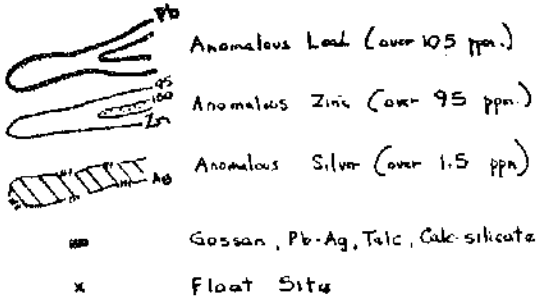 Pb
Anomalous Lead (over 105 ppm.)
95
100
Zn
Anomalous Zinc (over 95 ppm.)
Ag
Anomalous Silver (over 1.5 ppm)
Gossan, Pb-Ag, Talc, Calc-silicate
x Float Site